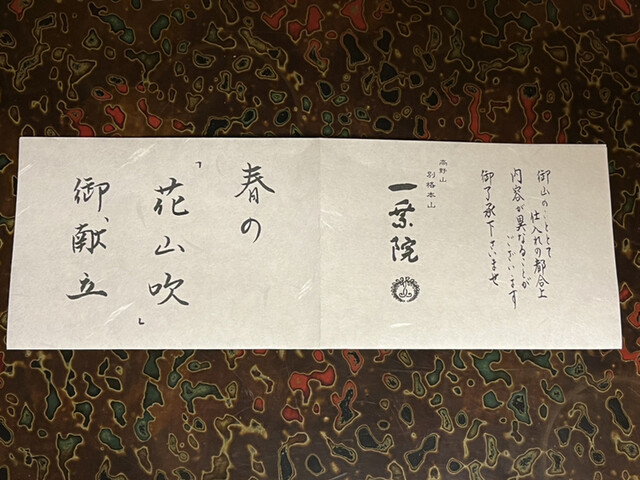 御山のこととて
仕入れの都合上
内容が異なることが
ございます
御了承下さいませ
高野山
別格本山
一乗院
春の
「花山吹」
御献立